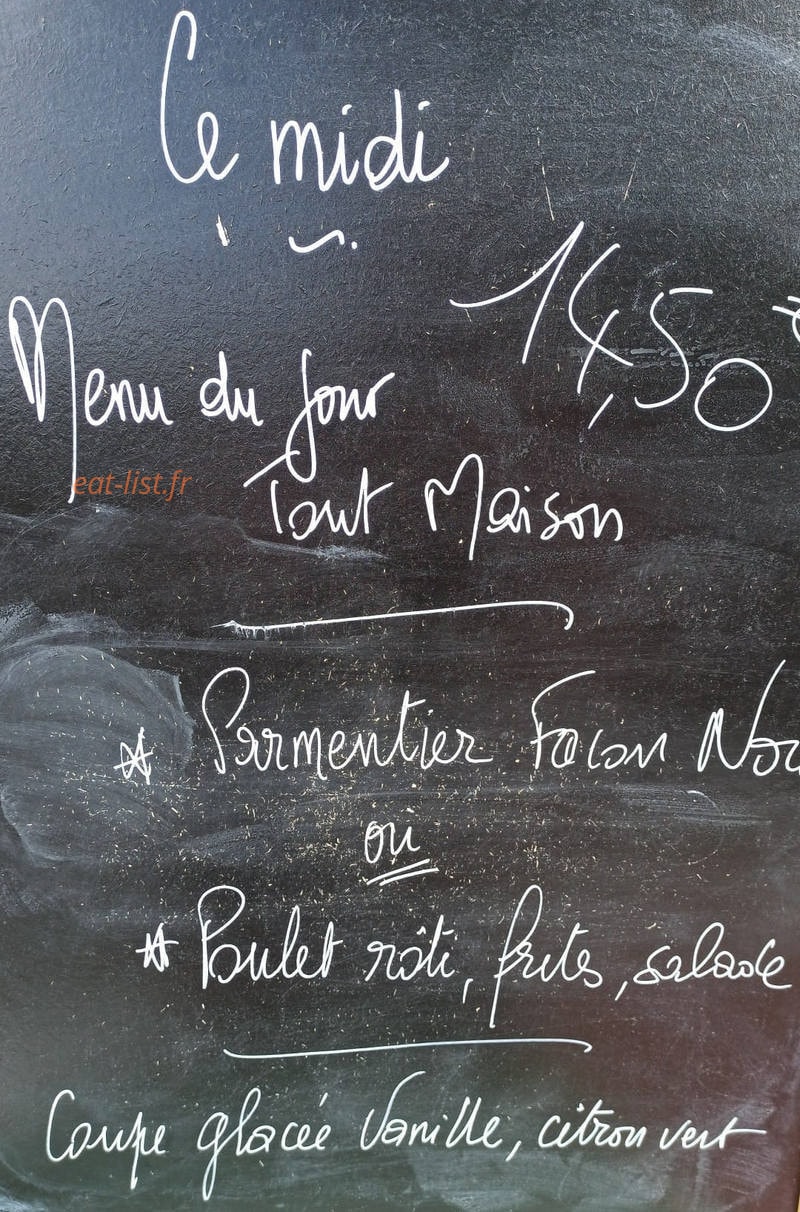 Ce midi
14,50 €
Menu du jour
eat-list.fr
Tout Maison
* Parmentier Facon
ou
* Poulet rôti, frites, salade
Coupe glacée Vanille, citron vert